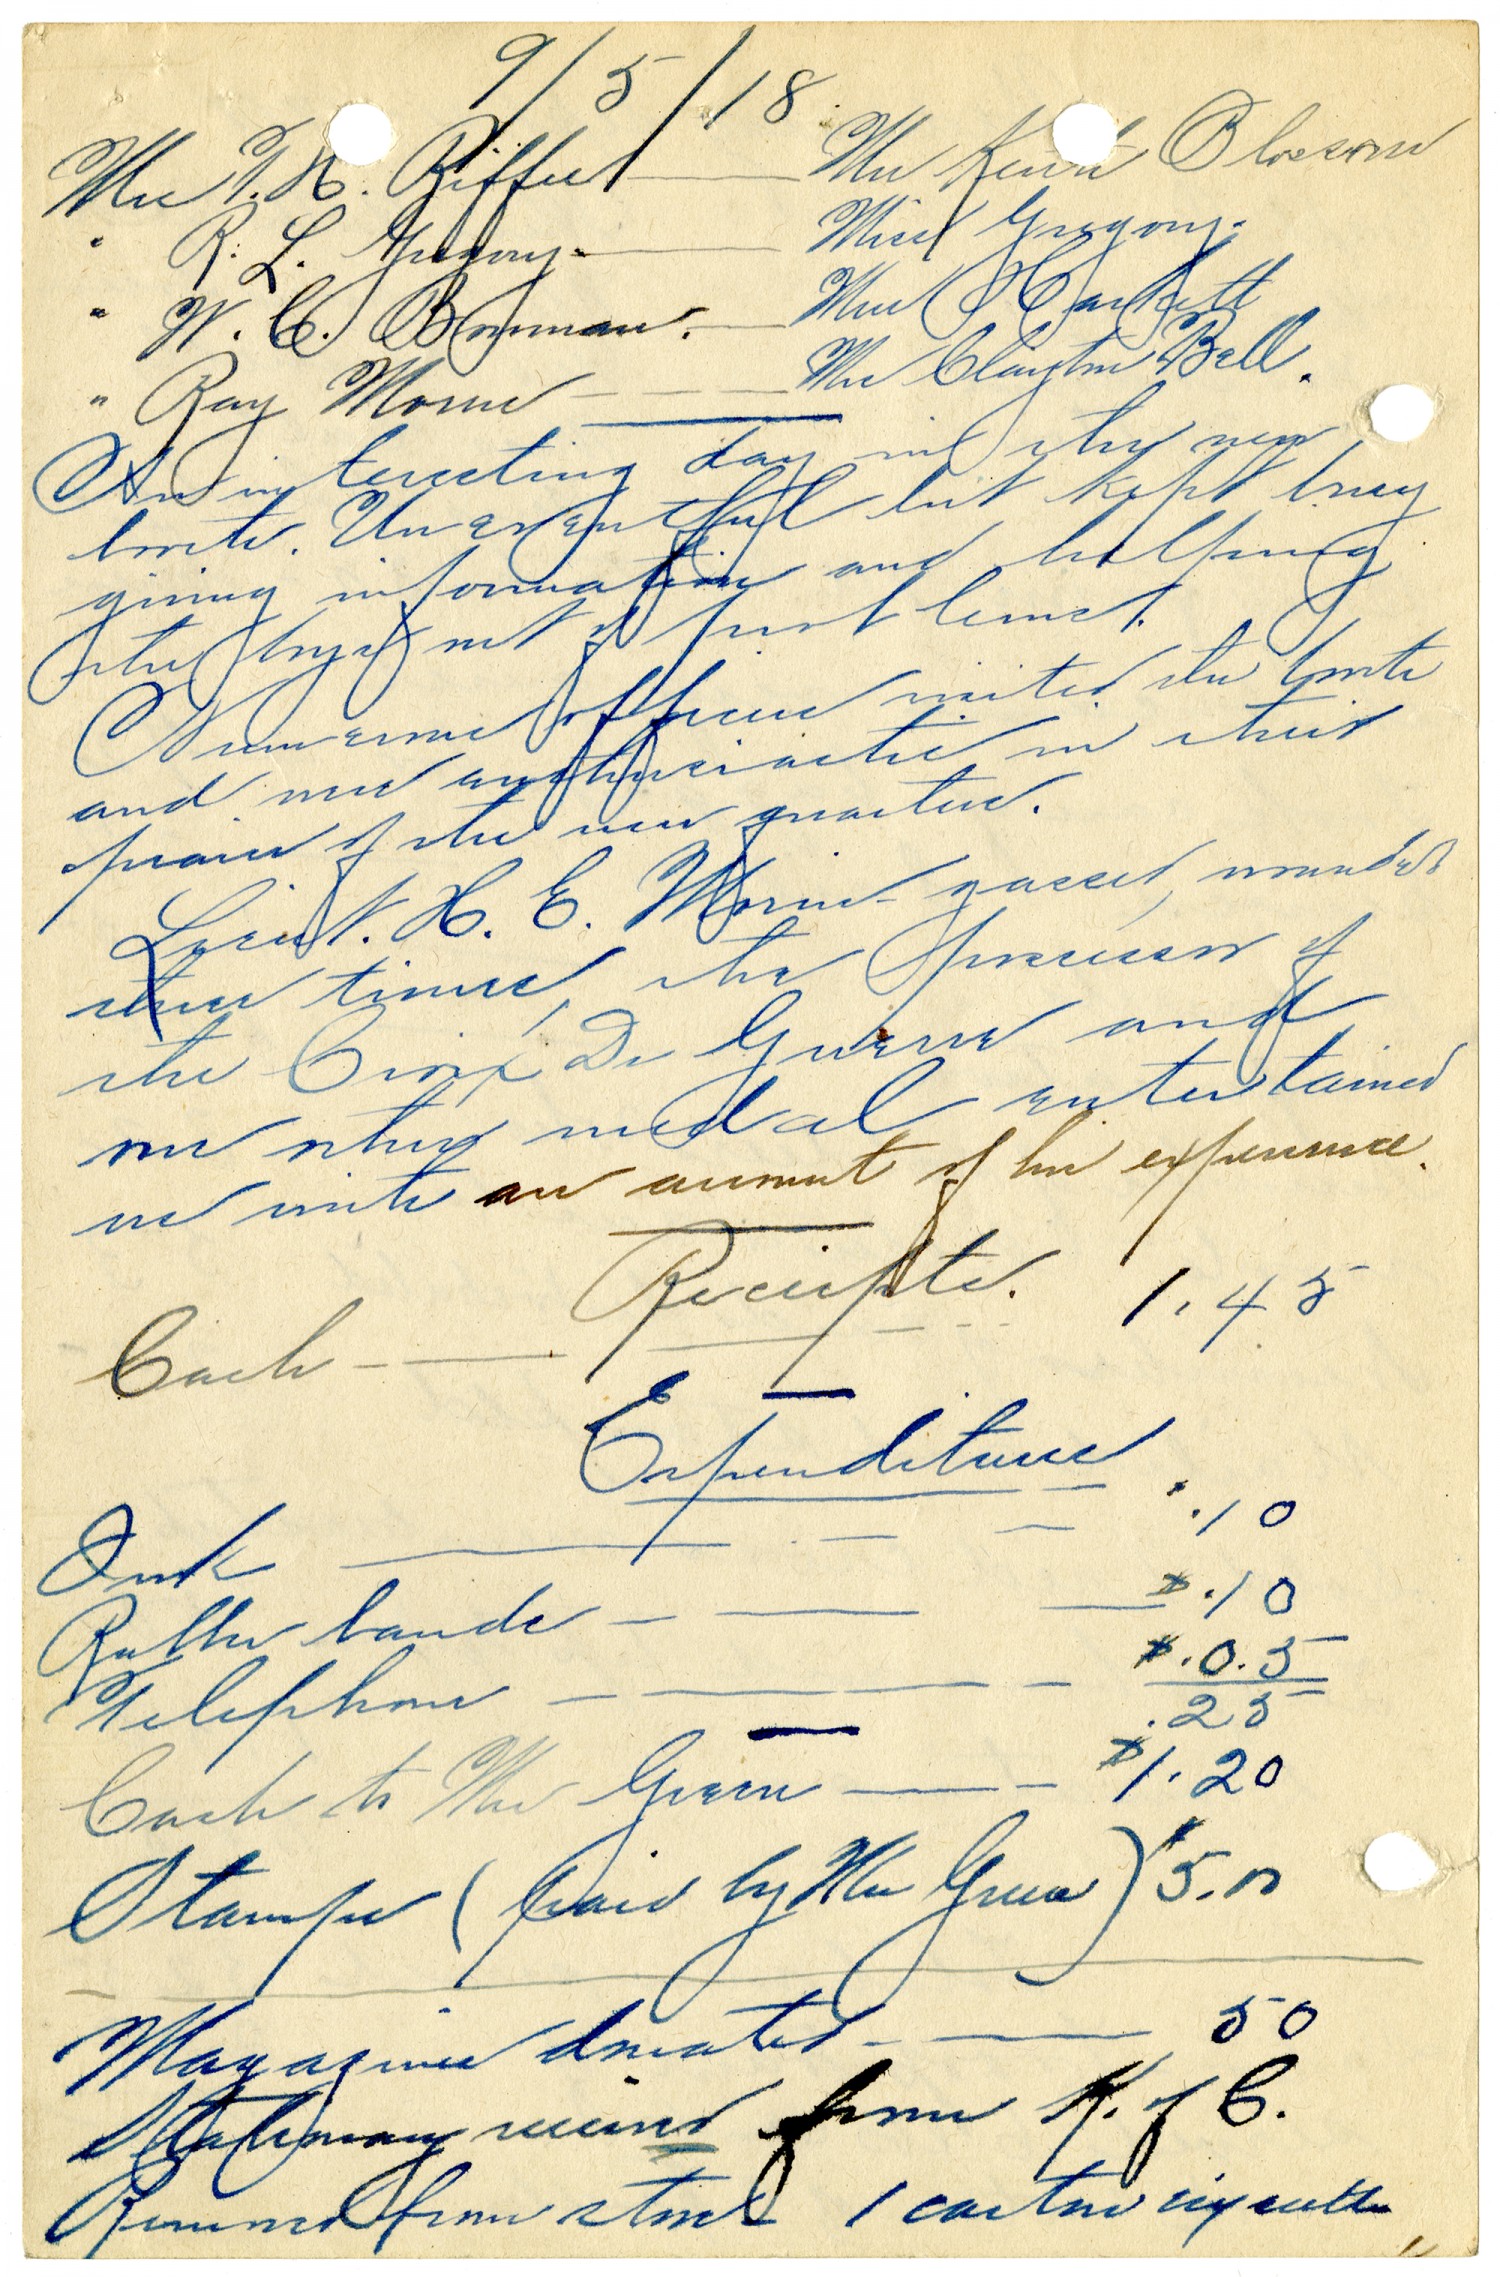 9/5/18
Mrs T. H. Riffe — Mrs Blossom
" R. L. Gregory — Miss Gregory.
" W. C. Bowman. — Mrs Hackett
" Ray Morse — Mrs Clayton Bell.
An interesting day in the new
booth. Uneventful but kept busy
giving information and helping
the boys out of problems.
Numerous officers visited the booth
and were enthusiastic in their
praise of the new quarters.
Lieut. H. E. Morse - gassed, wounded
three times, the possessor of
the Croix De Guerre and
one other medal entertained
us with an account of his experience.
Receipts.
Cash — 1.45
Expenditures
Ink — .10
Rubber bands — $.10
Telephone — $.0.5
.25
Cash to Mrs Green — $1.20
Stamps (paid by Mrs Green) $5.00
Magazines donated — 50
Stationary received from K. of C.
Removed from stock 1 carton cigarettes